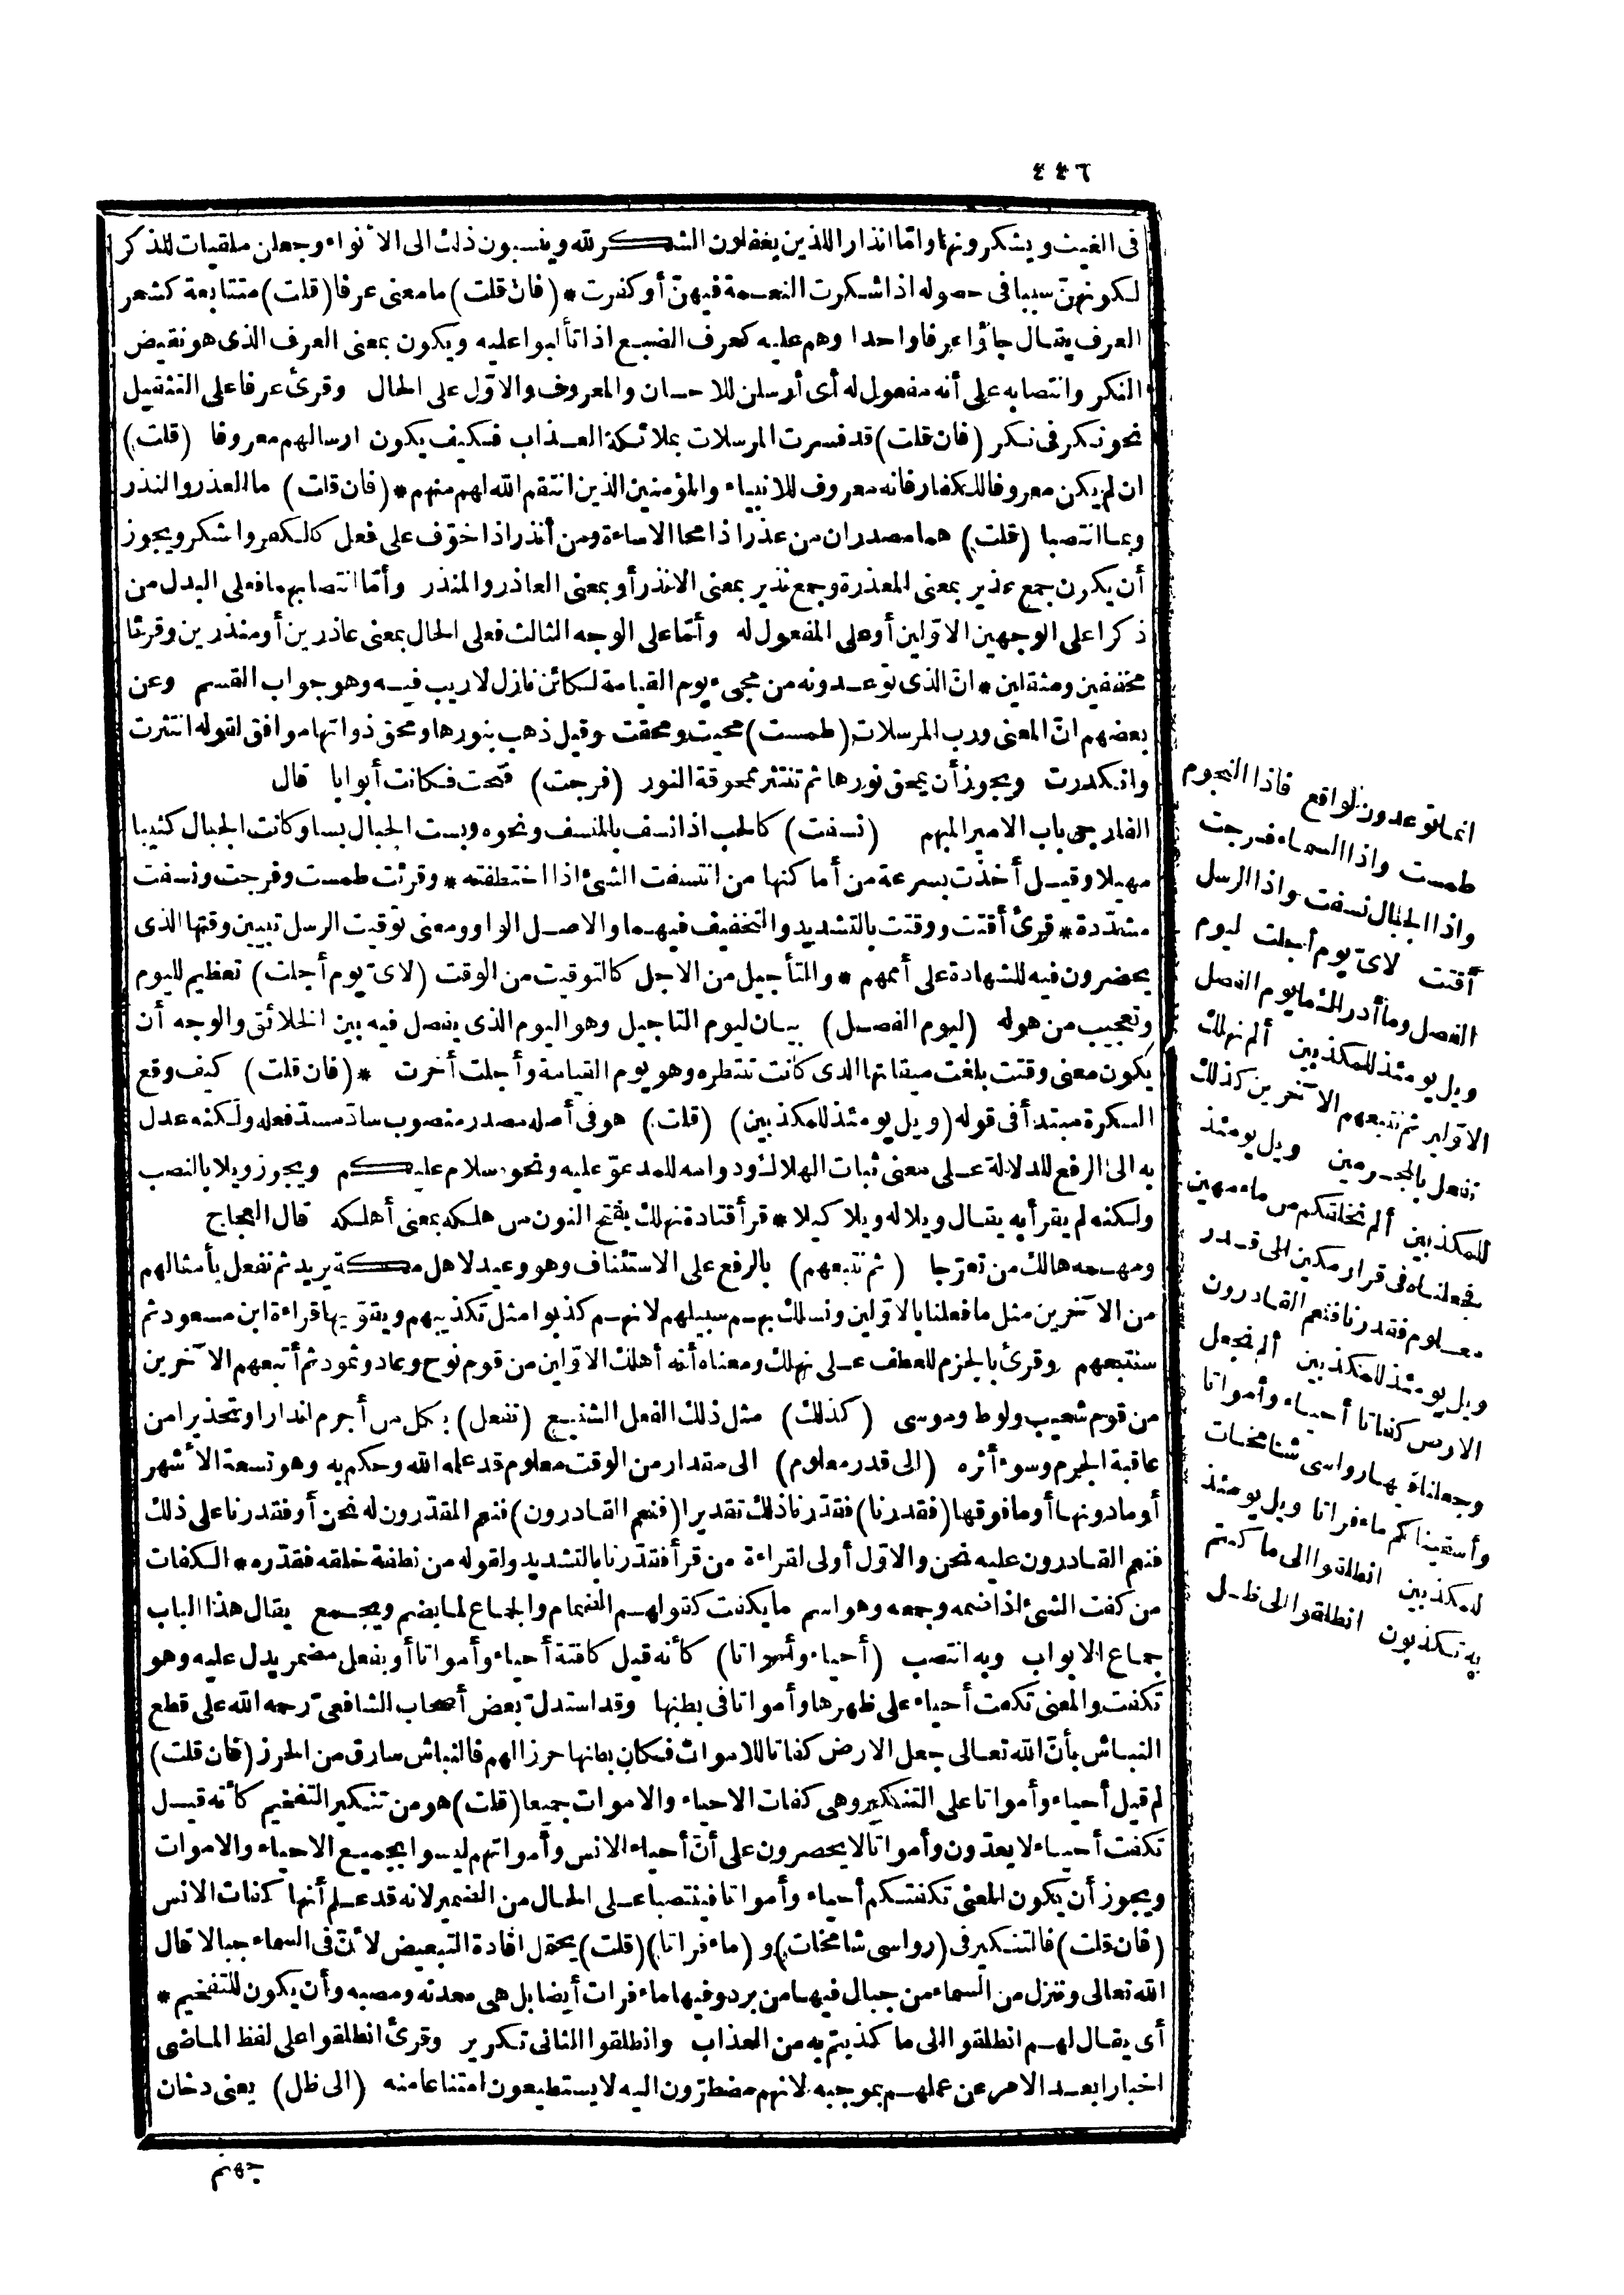 ٤٤٦
فى الغيث ويشكرونها واما انذارا للذين يغفلون الشكر لله وينسبون ذلك الى الأنواء وجعلن ملقيات للذكر
لكونهن سببا فى حصوله اذا شكرت النعمة فيهن أو كفرت * (فان قلت) ما معنى عرفا (قلت) متتابعة كشعر
العرف يقال جاؤا عرفا واحدا وهم عليه كعرف الضبع اذا تألبوا عليه ويكون بمعنى العرف الذى هو نقيض
النكر وانتصابه على أنه مفعول له أى أرسلن للاحسان والمعروف والاوّل على الحال وقرئ عرفا على التثقيل
نحو نكر فى نكر (فان قلت) قد فسرت المرسلات بملائكة العذاب فكيف يكون ارسالهم معروفا (قلت)
ان لم يكن معروفا للكفار فانه معروف للانبياء والمؤمنين الذين انتقم الله لهم منهم * (فان قلت) ما العذر والنذر
وبما انتصبا (قلت) هما مصدران من عذر اذا محا الاساءة ومن أنذر اذا خوّف على فعل كالكفر والشكر ويجوز
أن يكون جمع عذير بمعنى المعذرة وجمع نذير بمعنى الانذار أو بمعنى العاذر والمنذر وأمّا انتصابهما فعلى البدل من
ذكرا على الوجهين الاوّلين أو على المفعول له وأمّا على الوجه الثالث فعلى الحال بمعنى عاذرين أو منذرين وقرئا
مخففين ومثقلين * انّ الذى توعدونه من مجىء يوم القيامة لكائن نازل لا ريب فيه وهو جواب القسم وعن
بعضهم انّ المعنى ورب المرسلات (طمست) محيت ومحقت وقيل ذهب بنورها ومحق ذواتها موافق لقوله انتثرت
وانكدرت ويجوز أن يمحق نورها ثم تنتثر ممحوقة النور (فرجت) فتحت فكانت أبوابا قال
الفارجى باب الامير المبهم (نسفت) كالحب اذا نسف بالمنسف ونحوه وبست الجبال بسا وكانت الجبال كثيبا
مهيلا وقيل أخذت بسرعة من أماكنها من انتسفت الشئ اذا اختطفته * وقرئت طمست وفرجت ونسفت
مشدّدة * قرئ أقتت ووقتت بالتشديد والتخفيف فيهما والاصل الواو ومعنى توقيت الرسل تبيين وقتها الذى
يحضرون فيه للشهادة على أممهم * والتأجيل من الاجل كالتوقيت من الوقت (لاىّ يوم أجلت) تعظيم لليوم
وتعجيب من هوله (ليوم الفصل) بيان ليوم التاجيل وهو اليوم الذى يفصل فيه بين الخلائق والوجه أن
يكون معنى وقتت بلغت ميقاتها الذى كانت تنتظره وهو يوم القيامة وأجلت أخرت * (فان قلت) كيف وقع
النكرة مبتدأ فى قوله (ويل يومئذ للمكذبين) (قلت) هو فى أصله مصدر منصوب سادّ مسدّ فعله ولكنه عدل
به الى الرفع للدلالة على معنى ثبات الهلاك ودوامه للمدعوّ عليه ونحوه سلام عليكم ويجوز ويلا بالنصب
ولكنه لم يقرأ به يقال ويلا له ويلا كيلا * قرأ قتادة نهلك بفتح النون من هلكه بمعنى أهلكه قال العجاج
ومهمه هالك من تعرّجا (ثم نتبعهم) بالرفع على الاستئناف وهو وعيد لاهل مكة يريد ثم نفعل بأمثالهم
من الآخرين مثل ما فعلنا بالاوّلين ونسلك بهم سبيلهم لانهم كذبوا مثل تكذيبهم ويقوّيها قراءة ابن مسعود ثم
سنتبعهم وقرئ بالجزم للعطف على نهلك ومعناه أنه أهلك الاوّلين من قوم نوح وعاد وثمود ثم أتبعهم الآخرين
من قوم شعيب ولوط وموسى (كذلك) مثل ذلك الفعل الشنيع (نفعل) بكل من أجرم انذارا وتحذيرا من
عاقبة الجرم وسوء أثره (الى قدر معلوم) الى مقدار من الوقت معلوم قد علمه الله وحكم به وهو تسعة الأشهر
أو ما دونها أو ما فوقها (فقدرنا) فقدّرنا ذلك تقديرا (فنعم القادرون) فنعم المقدّرون له نحن أو فقدرنا على ذلك
فنعم القادرون عليه نحن والاوّل أولى لقراءة من قرأ فقدّرنا بالتشديد ولقوله من نطفة خلقه فقدّره * الكفات
من كفت الشئ اذا ضمه وجمعه وهو اسم ما يكفت كقولهم الضمام والجماع لما يضم ويجمع يقال هذا الباب
جماع الابواب وبه انتصب (أحياء وأمواتا) كأنه قيل كافتة أحياء وأمواتا أو بفعل مضمر يدل عليه وهو
تكفت والمعنى تكفت أحياء على ظهرها وأمواتا فى بطنها وقد استدلّ بعض أصحاب الشافعىّ رحمه الله على قطع
النباش بأنّ الله تعالى جعل الارض كفاتا للاموات فكان بطنها حرزا لهم فالنباش سارق من الحرز (فان قلت)
لم قيل أحياء وأمواتا على التنكير وهى كفات الاحياء والاموات جميعا (قلت) هو من تنكير التفخيم كأنه قيل
تكفت أحياء لا يعدّون وأمواتا لا يحصرون على أنّ أحياء الانس وأمواتهم ليسوا بجميع الاحياء والاموات
ويجوز أن يكون المعنى تكفتكم أحياء وأمواتا فينتصبا على الحال من الضمير لانه قد علم أنها كفات الانس
(فان قلت) فالتنكير فى (رواسى شامخات) و (ماء فراتا) (قلت) يحتمل افادة التبعيض لأنّ فى السماء جبالا قال
الله تعالى وننزل من السماء من جبال فيها من برد وفيها ماء فرات أيضا بل هى معدنه ومصبه وأن يكون للتفخيم *
أى يقال لهم انطلقوا الى ما كذبتم به من العذاب وانطلقوا الثانى تكرير وقرئ انطلقوا على لفظ الماضى
اخبارا بعد الامر عن عملهم بموجبه لانهم مضطرّون اليه لا يستطيعون امتناعا منه (الى ظل) يعنى دخان
انما توعدون لواقع فاذا النجوم
طمست واذا السماء فرجت
واذا الجبال نسفت واذا الرسل
أقتت لاىّ يوم أجلت ليوم
الفصل وما أدراك ما يوم الفصل
ويل يومئذ للمكذبين ألم نهلك
الاوّلين ثم نتبعهم الآخرين كذلك
نفعل بالمجرمين ويل يومئذ
للمكذبين ألم نخلقكم من ماء مهين
فجعلناه فى قرار مكين الى قدر
معلوم فقدرنا فنعم القادرون
ويل يومئذ للمكذبين ألم نجعل
الارض كفاتا أحياء وأمواتا
وجعلنا فيها رواسى شامخات
وأسقيناكم ماء فراتا ويل يومئذ
للمكذبين انطلقوا الى ما كنتم
به تكذبون انطلقوا الى ظل
جهنم